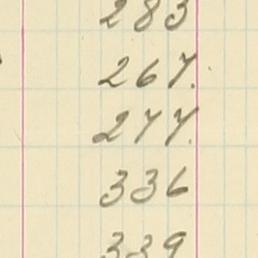 283
267.
277.
336
339